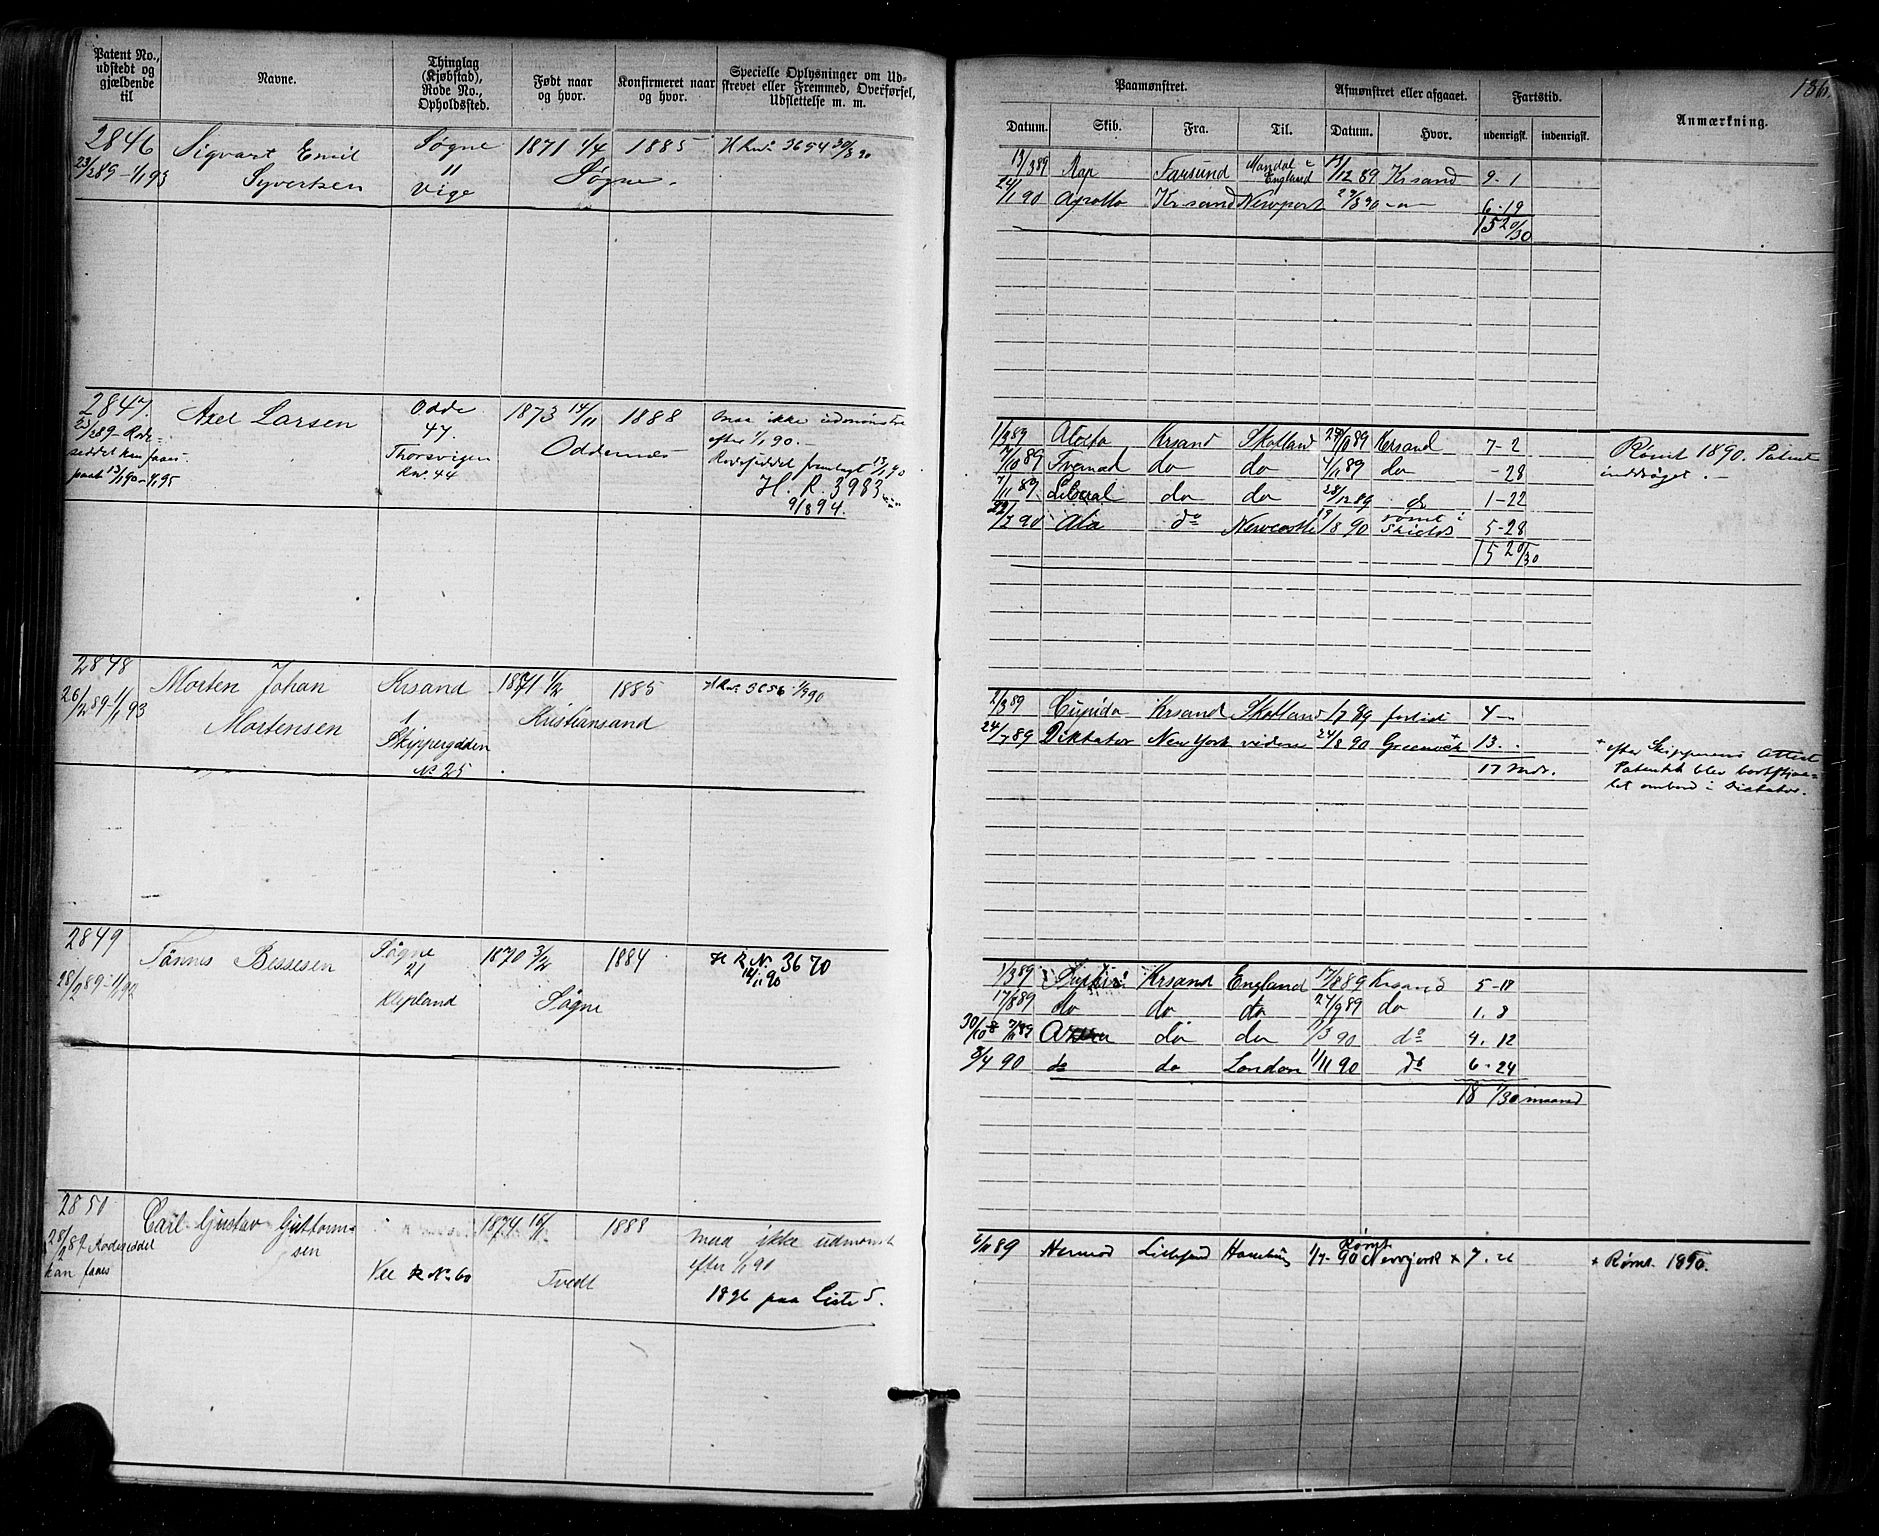 Patent No., udstedt og gjældende til
Navne.
Thinglag (Kjøbstad), Rode No., Opholdssted.
Født naar og hvor.
Konfirmeret naar og hvor.
Specielle Oplysninger om Udskrevet eller Fremmed, Overførsel, Udslettelse m. m.
2846
23/2 89 - 1/1 93
Sigvart Emil
Syvertsen
Søgne
"
Vige
1871 1/4
Søgne.
1885
2847.
23/2 89 - Rode-
seddel kan faaes
paat 13/1 90 - 1/1 95
Axel Larsen
Odde
47.
Thorsvigen
1873 14/11
Oddernæs
1888
maa ikke udmønstres
efter 1/1 90. -
Rodeseddel fremlagt 13/1 90
H. R. 3983
9/8 94.
2848
26/2 89 - 1/1 93
Morten Johan
Mortensen
Krsand
1
Skippergaden
No 25
1871 1/2
Kristiansand
1885
2849
28/2 89 - 1/1 92
Tønnes Bessesen
Søgne
21
Klepland
1870 3/2
Søgne
1884
H R No 3670
12/11 90
2850
28/2 89 Rodeseddel
kan faaes
Carl Gustav Guttorm-
sen
Vee R No 60
1874 16/11
Tvedt
1888
maa ikke udmønst
efter 1/1 90
1896 paa Liste 5.
136.
Paamønstret.
Afmønstret eller afgaaet.
Fartstid.
Anmærkning.
Datum.
Skib.
Fra.
Til.
Datum.
Hvor.
udenrigsk.
indenrigsk.
13/3 89 Rap Farsund Mandal & England 13/12 89 Krsand 9 - 1
24/1 90 Apollo Krsand Newport 6 - 19
15 20/30
1/3 89 Krsand Skotland Krsand 7 - 2
Rømt 1890. Patent
inddraget. -
do do 4/11 89 do - 28
7/11 89 Liberal do do 28/12 89 do 1 - 22
22/3 90 Ala do Newcastle 19/8 90 rømt i Shields 5 - 28
15 20/30
2/3 89 Cupido Krsand Skotland 1/7 89 forlist 4 -
24/7 89 Diktator New York videre 24/8 90 Greenock + 13 .
+ efter Skipperens Attest
17 Mdr.
Patentet blev bortskyl-
let ombord i Dictator.
1/3 89 Krsand England 17/8 89 Krsand 5 - 18
17/8 89 do do do 27/9 89 do 1. 8
do do 1/3 90 do 4. 12
8/4 90 do do London 1/11 90 do 6 - 24
18 1/30 maaned
6/11 89 Hermod 1/7 - 90 Rømt Newyork + 7 . 26
+ Rømt 1890.